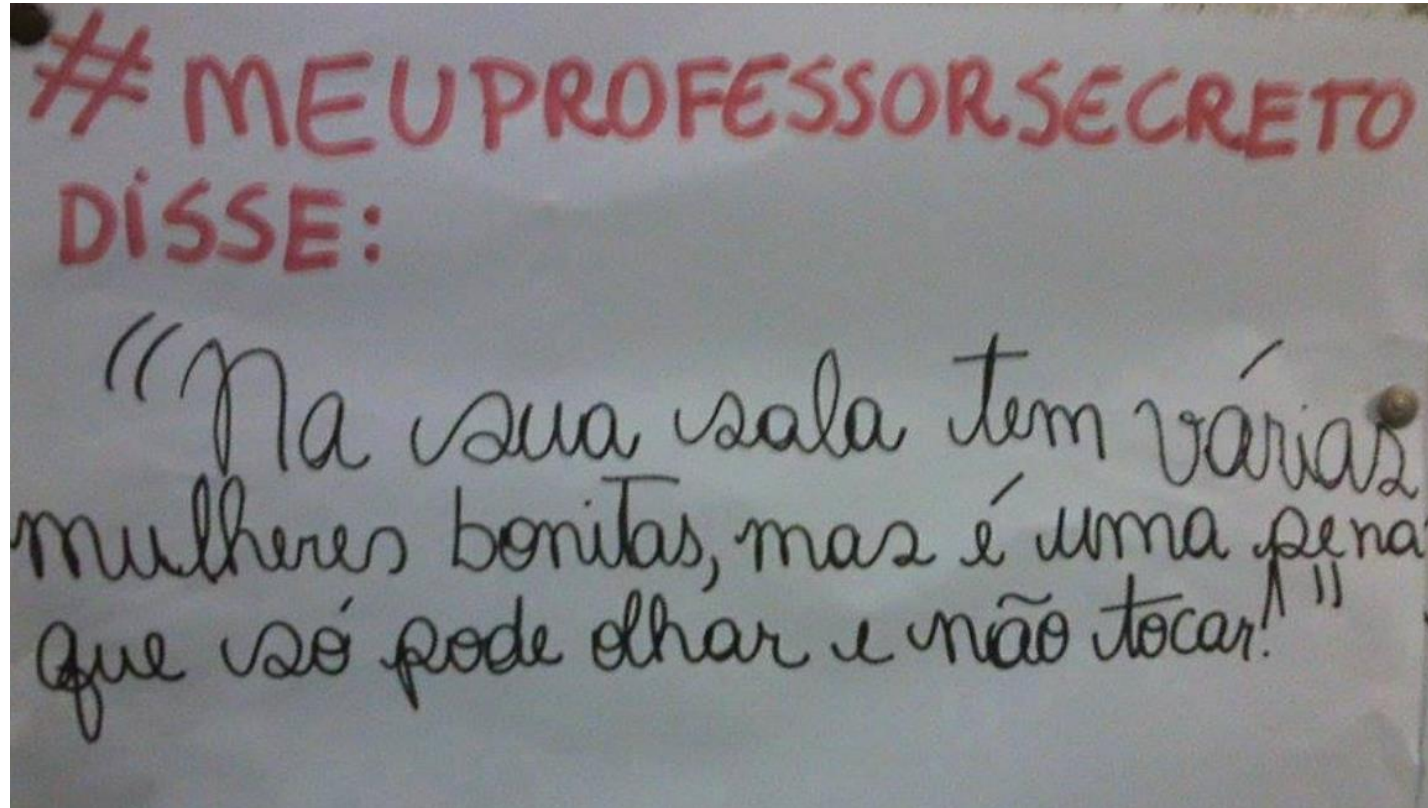 #MEUPROFESSORSECRETO
DISSE:
"Na sua sala tem várias
mulheres bonitas, mas é uma pena
que só pode olhar e não tocar!"